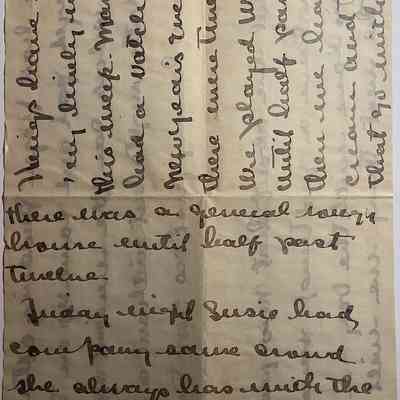 Things have
very lively
this week. Mon
had a watch
New Years eve
there were twe
We played W
until half pas
then we ha
cream and
that go with
there was a general rough
house until half past
twelve.
Friday night Susie had
company same crowd
she always has with the